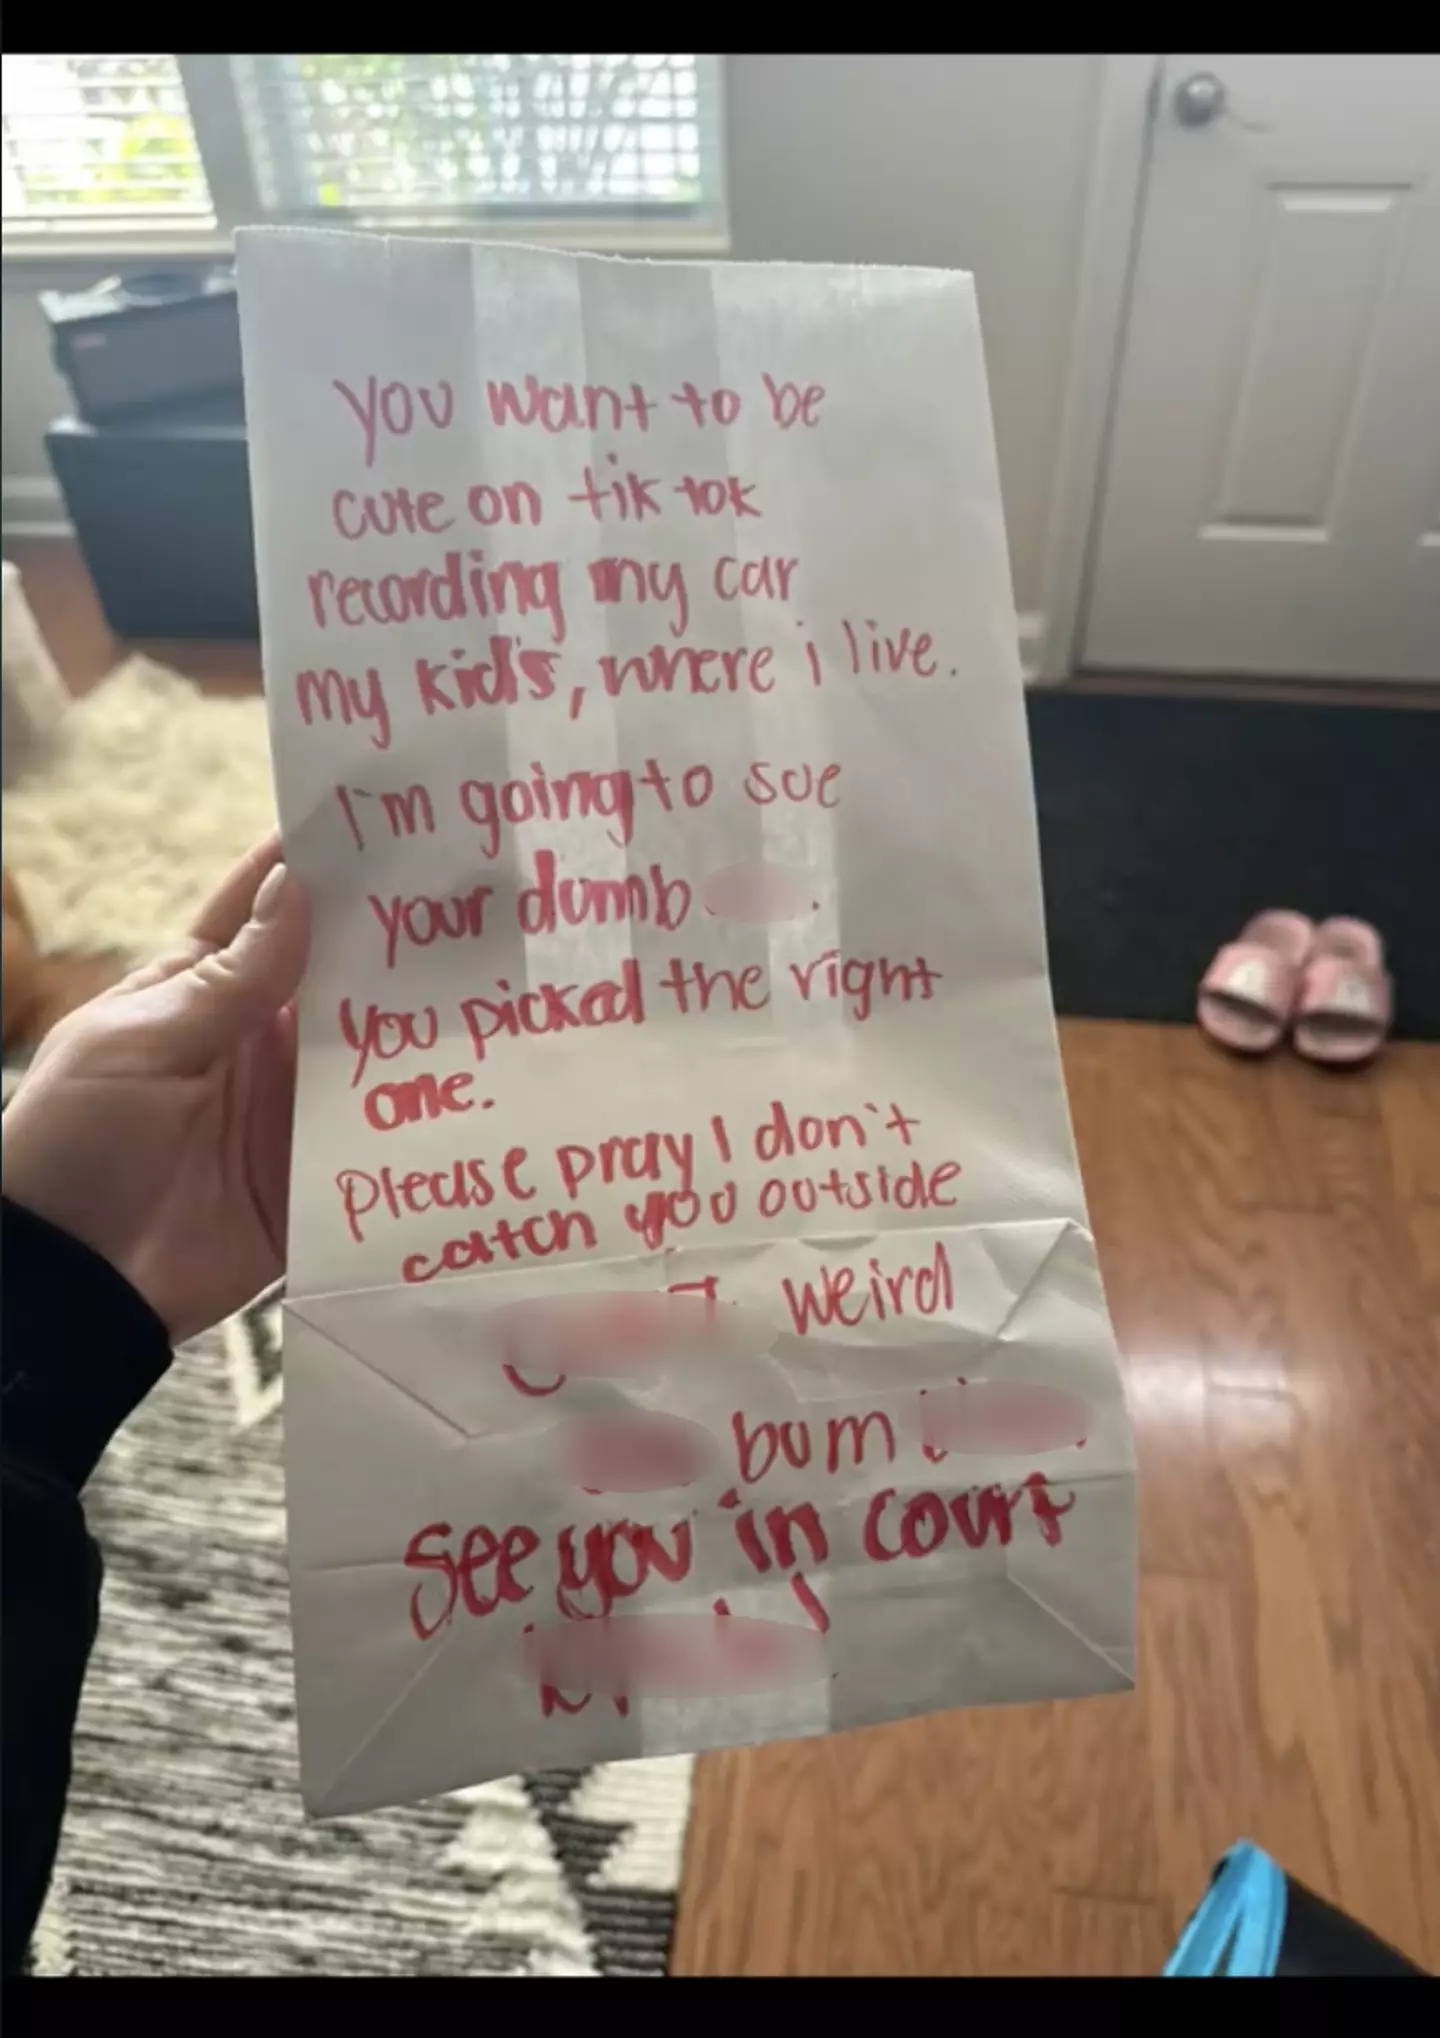 you want to be
cute on tik tok
recording my car
my kid's, where i live.
I'm going to sue
your dumb
you picked the right
one.
please pray I don't
catch you outside
weird
bum
see you in court